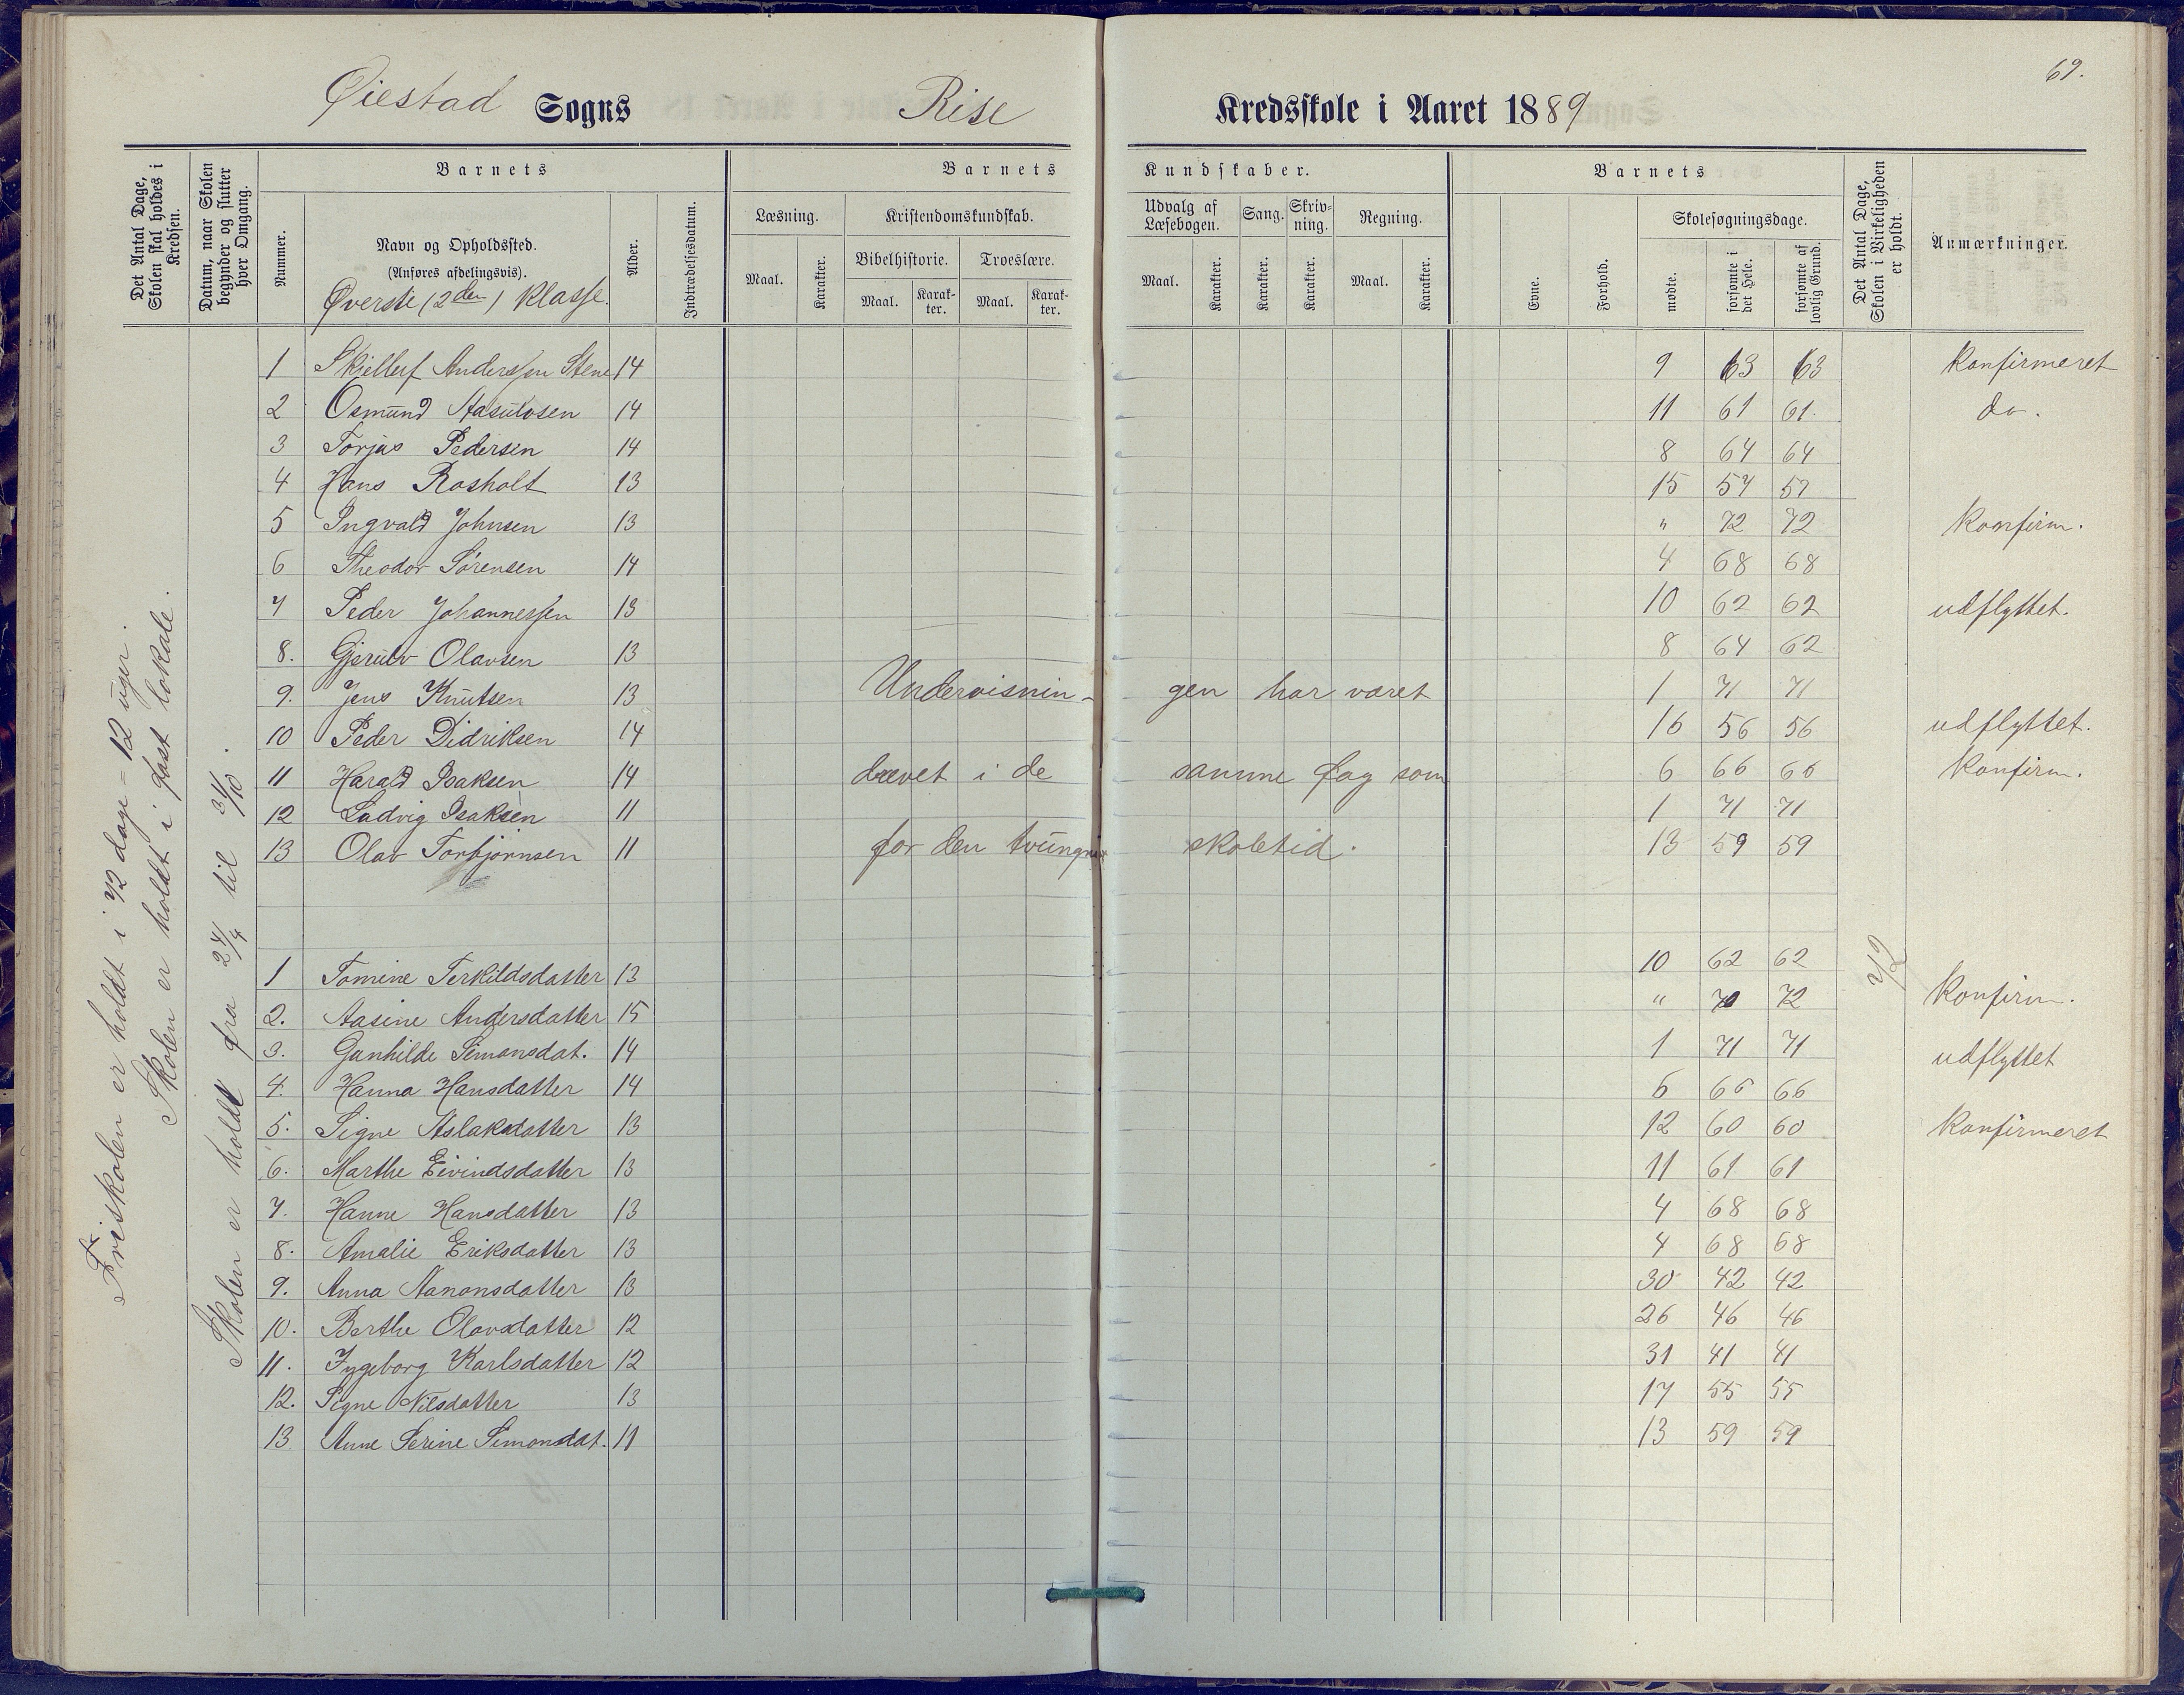 69.
Øiestad Sogns Rise Kredsskole i Aaret 1889
Det Antal Dage, Skolen skal holdes i Kredsen.
Datum, naar Skolen begynder og slutter hver Omgang.
Nummer.
Barnets
Navn og Opholdssted.
(Anføres afdelingsvis).
Øverste (2den) Klasse.
Alder.
Indtrædelsesdatum.
Barnets Kundskaber.
Læsning.
Maal. Karakter.
Kristendomskundskab.
Bibelhistorie. Troeslære.
Maal. Karakter. Maal. Karakter.
Udvalg af Læsebogen.
Maal. Karakter.
Sang. Karakter.
Skrivning. Karakter.
Regning.
Maal. Karakter.
Barnets
Evne. Forhold.
Skolesøgningsdage.
mødte. forsømte i det Hele. forsømte af lovlig Grund.
Det Antal Dage, Skolen i Virkeligheden er holdt.
Anmærkninger.
Friskolen er holdt i 72 dage = 12 uger.
Skolen er holdt i fast lokale.
Skolen er holdt fra 24/4 til 31/10.
1 Skjellef Anderssen Stene 14 9 63 63 Konfirmeret
2 Osmund Aasulvsen 14 11 61 61. do.
3 Torjus Pedersen 14 8 64 64
4 Hans Rosholt 13 15 57 57
5 Ingvald Johnsen 13 " 72 72 Konfirm.
6 Theodor Sørensen 14 4 68 68
7 Peder Johannessen 13 10 62 62 udflyttet.
8. Gjerulv Olavsen 13 8 64 62
9. Jens Knutsen 13 1 71 71
10 Peder Didriksen 14 16 56 56 udflyttet.
11 Harald Isaksen 14 6 66 66 Konfirm.
12 Ludvig Isaksen 11 1 71 71
13 Olav Torbjørnsen 11 13 59 59
Undervisnin- gen har været
drevet i de samme fag som
for den tvungne skoletid.
72
1 Tomine Terkildsdatter 13 10 62 62
2. Aasine Andersdatter 15 " 72 72 Konfirm.
3. Gunhilde Simonsdat. 14 1 71 71 udflyttet
4. Hanna Hansdatter 14 6 66 66
5. Signe Aslaksdatter 13 12 60 60 Konfirmeret
6. Marthe Eivindsdatter 13 11 61 61
7. Hanne Hansdatter 13 4 68 68
8. Amalie Eriksdatter 13 4 68 68
9. Anna Aanonsdatter 13 30 42 42
10. Berthe Olavsdatter 12 26 46 46
11. Ingeborg Karlsdatter 12 31 41 41
12. Signe Nilsdatter 13 17 55 55
13 Anne Serine Simonsdat. 11 13 59 59